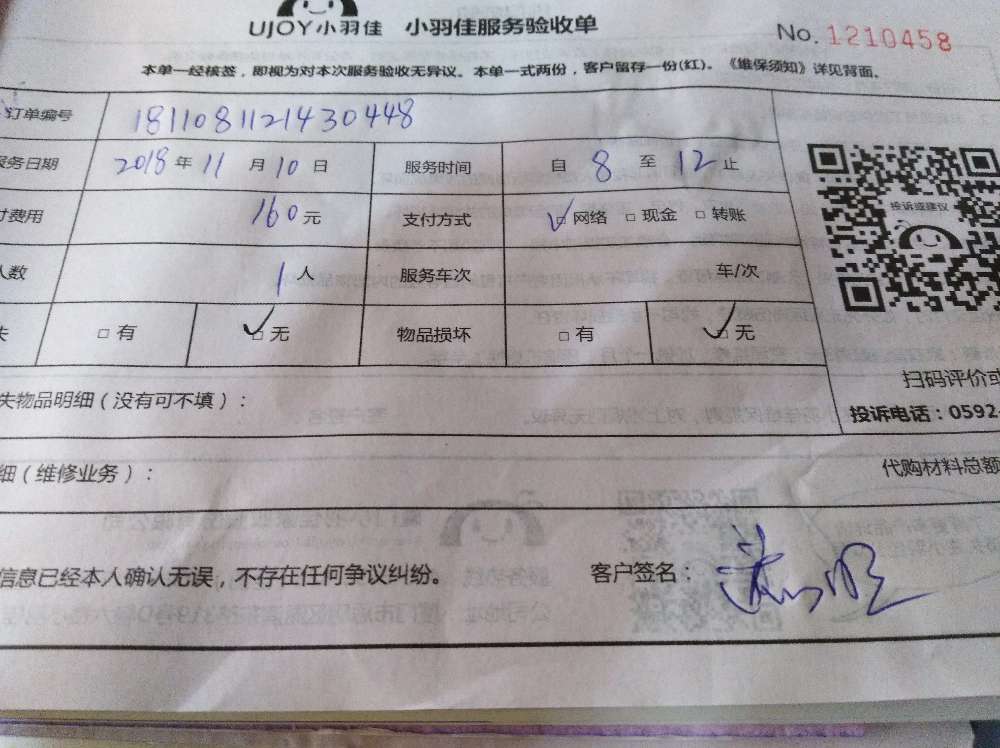 UJOY小羽佳 小羽佳服务验收单 No. 1210458
本单一经核签，即视为对本次服务验收无异议。本单一式两份，客户留存一份(红)。《维保须知》详见背面。
订单编号 181108112143​0448
服务日期 2018 年 11 月 10 日 服务时间 自 8 至 12 止
付费用 160 元 支付方式 ☑ 网络 □ 现金 □ 转账
投诉或建议
人数 1 人 服务车次 车/次
失 □ 有 ☑ 无 物品损坏 □ 有 ☑ 无
扫码评价或
失物品明细（没有可不填）：
投诉电话：0592-
细（维修业务）：
代购材料总额
信息已经本人确认无误，不存在任何争议纠纷。 客户签名：